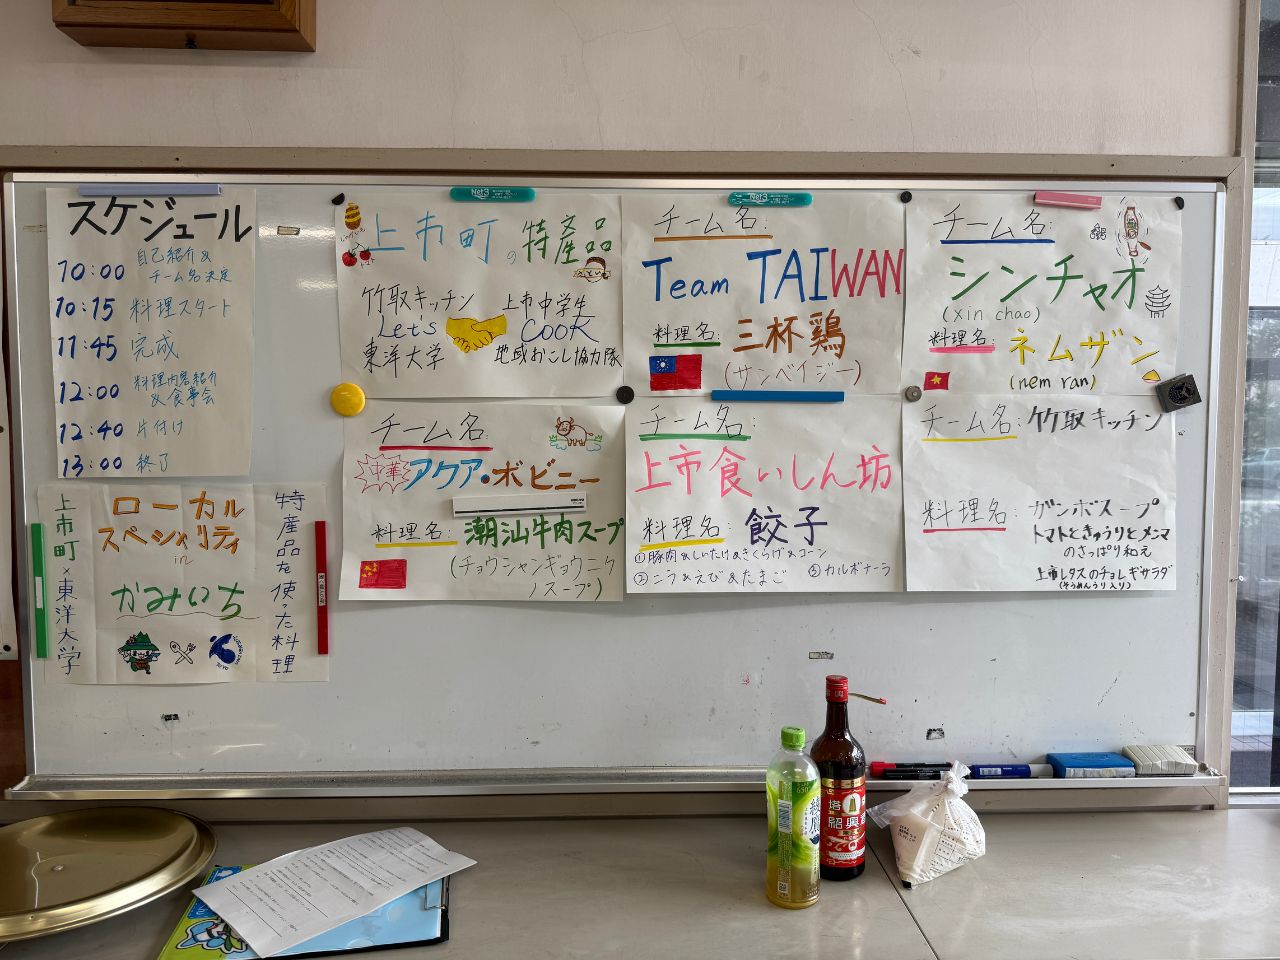 スケジュール
10:00 自己紹介&
チーム名決定
10:15 料理スタート
11:45 完成
12:00 料理内容紹介
&食事会
12:40 片付け
13:00 終了
上市町×東洋大学
ローカル
スペシャリティ
in
かみいち
特産品を使った料理
上市町の特産品
竹取キッチン 上市中学生
Let's COOK
東洋大学 地域おこし協力隊
チーム名:
Team TAIWAN
料理名: 三杯鶏
(サンベイジー)
チーム名:
シンチャオ
(xin chao)
料理名: ネムザン
(nem ran)
チーム名:
中華 アクア・ボビニー
料理名: 潮汕牛肉スープ
(チョウシャンギョウニク
スープ)
チーム名:
上市食いしん坊
料理名: 餃子
①豚肉&しいたけ&きくらげ&コーン
②ニラ&えび&たまご ③カルボナーラ
チーム名: 竹取キッチン
料理名: ガンボスープ
トマトときゅうりとメンマ
のさっぱり和え
上市レタスのチョレギサラダ
(そうめんうり入り)
Net3
Net3
綾鷹
650
塔
紹興酒